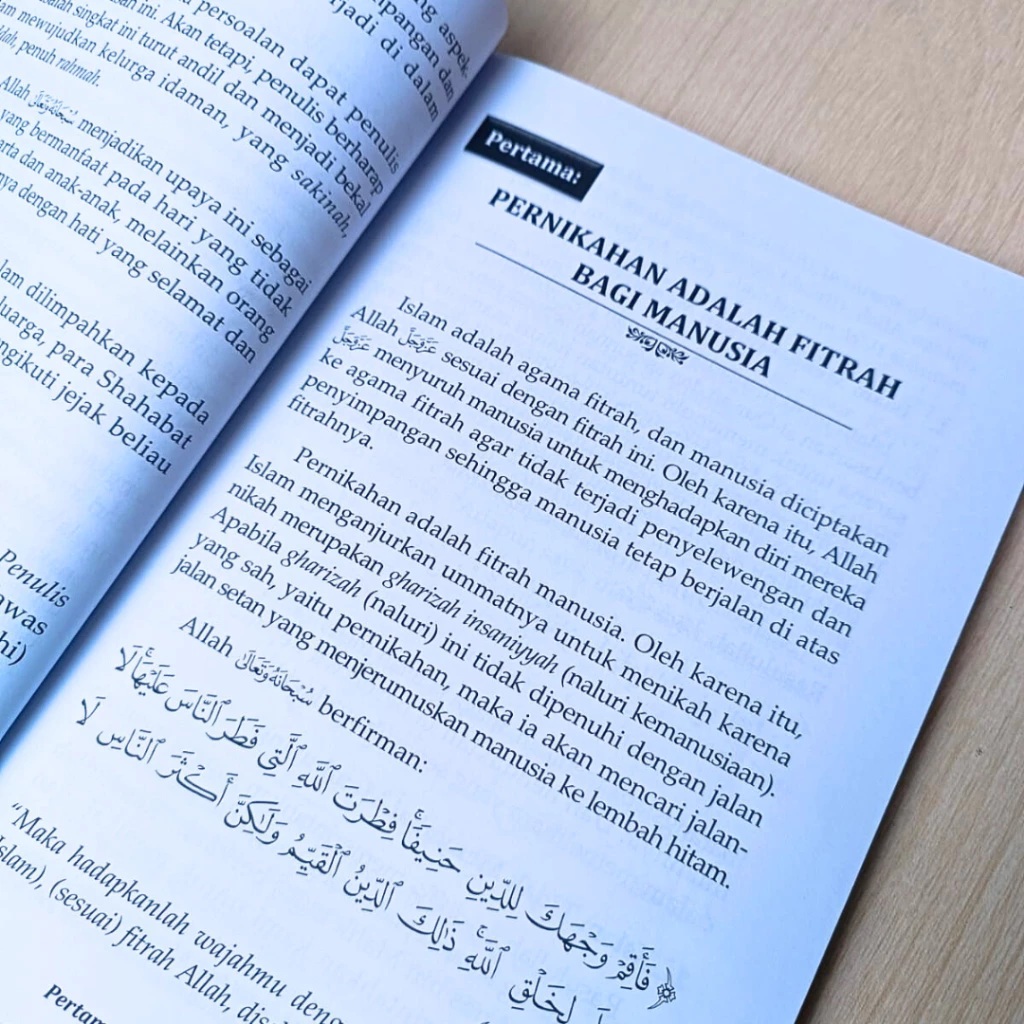 aspek.
persoalan dapat penulis
ini. Akan tetapi, penulis berharap
singkat ini turut andil dan menjadi bekal
mewujudkan kelurga idaman, yang sakinah,
penuh rahmah.
Allah سُبْحَانَهُ وَتَعَالَى menjadikan upaya ini sebagai
yang bermanfaat pada hari yang tidak
dan anak-anak, melainkan orang
dengan hati yang selamat dan
dilimpahkan kepada
para Shahabat
jejak beliau
Penulis
Pertama:
PERNIKAHAN ADALAH FITRAH
BAGI MANUSIA
Islam adalah agama fitrah, dan manusia diciptakan
Allah عَزَّوَجَلَّ sesuai dengan fitrah ini. Oleh karena itu, Allah
عَزَّوَجَلَّ menyuruh manusia untuk menghadapkan diri mereka
ke agama fitrah agar tidak terjadi penyelewengan dan
penyimpangan sehingga manusia tetap berjalan di atas
fitrahnya.
Pernikahan adalah fitrah manusia. Oleh karena itu,
Islam menganjurkan ummatnya untuk menikah karena
nikah merupakan gharizah insaniyyah (naluri kemanusiaan).
Apabila gharizah (naluri) ini tidak dipenuhi dengan jalan
yang sah, yaitu pernikahan, maka ia akan mencari jalan-
jalan setan yang menjerumuskan manusia ke lembah hitam.
Allah سُبْحَانَهُ وَتَعَالَى berfirman:
﴿ فَأَقِمْ وَجْهَكَ لِلدِّينِ حَنِيفًا ۚ فِطْرَتَ ٱللَّهِ ٱلَّتِي فَطَرَ ٱلنَّاسَ عَلَيْهَا ۚ لَا
لِخَلْقِ ٱللَّهِ ۚ ذَٰلِكَ ٱلدِّينُ ٱلْقَيِّمُ وَلَٰكِنَّ أَكْثَرَ ٱلنَّاسِ لَا
“Maka hadapkanlah wajahmu
(sesuai) fitrah Allah,